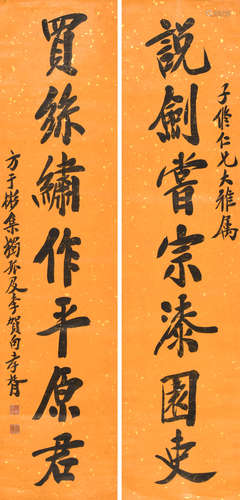 子修仁兄大雅属
說劍嘗宗漆園吏
買絲繡作平原君
方于彬集獨孤及李賀句孝胥